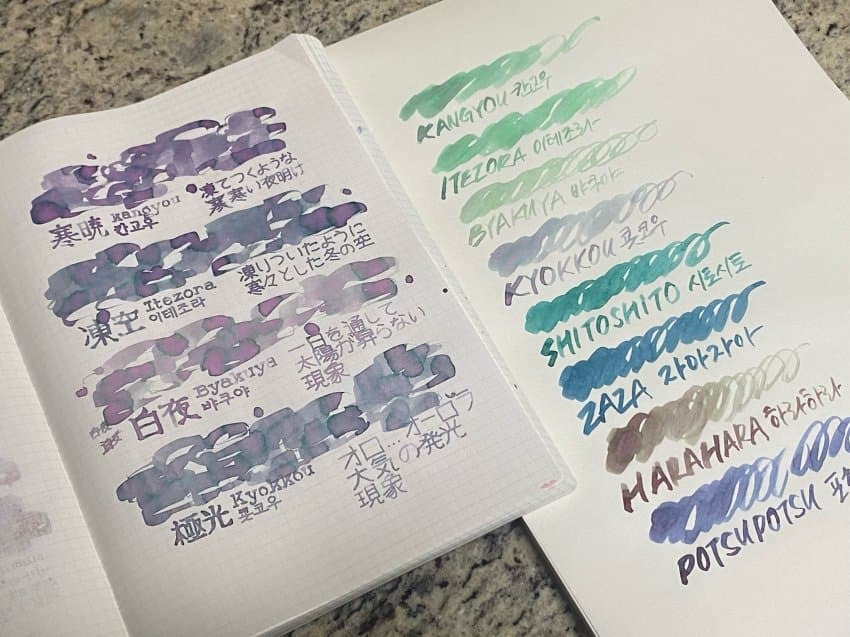 寒暁 Kangyou
칸교우
凍てつくような
寒い夜明け
凍空 Itezora
이테조라
凍りついたように
寒々とした冬の空
白夜 Byakuya
뱌쿠야
一日を通して
太陽が昇らない
現象
極光 Kyokkou
쿗코우
オロ…オーロラ
大気の発光
現象
KANGYOU 칸교우
ITEZORA 이테조라
BYAKUYA 뱌쿠야
KYOKKOU 쿗코우
SHITOSHITO 시토시토
ZAZA 자아자아
HARAHARA 하라하라
POTSUPOTSU 포